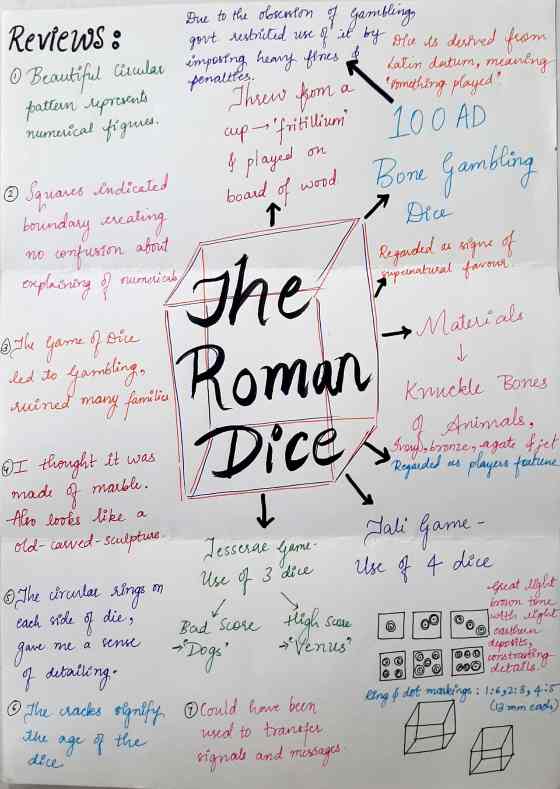 Reviews:
① Beautiful Circular
pattern represents
numerical figures.
② Squares indicated
boundary creating
no confusion about
explaining of numericals
③ The Game of Dice
led to Gambling,
ruined many families
④ I thought it was
made of marble.
Also looks like a
old-carved-sculpture.
⑤ The circular rings on
each side of die,
gave me a sense
of detailing.
⑥ The cracks signify
the age of the
dice
⑦ Could have been
used to transfer
signals and messages.
Due to the obsession of Gambling,
govt restricted use of it by
imposing heavy fines &
penalties.
Dice is derived from
Latin datum, meaning
"something played"
Threw from a
cup → 'fritillium'
& played on
board of wood
100 AD
Bone Gambling
Dice
Regarded as signs of
supernatural favour
The
Roman
Dice
Materials
↓
Knuckle Bones
of Animals,
Ivory, bronze, agate & jet
Regarded as players fortune
Tali Game -
Use of 4 dice
Tesserae Game-
Use of 3 dice
Bad Score
→ "Dogs"
High Score
→ "Venus"
Great light
brown tone
with light
earthern
deposits,
constrasting
details.
Ring & dot markings : 1:6, 2:5, 4:3
(13 mm each)